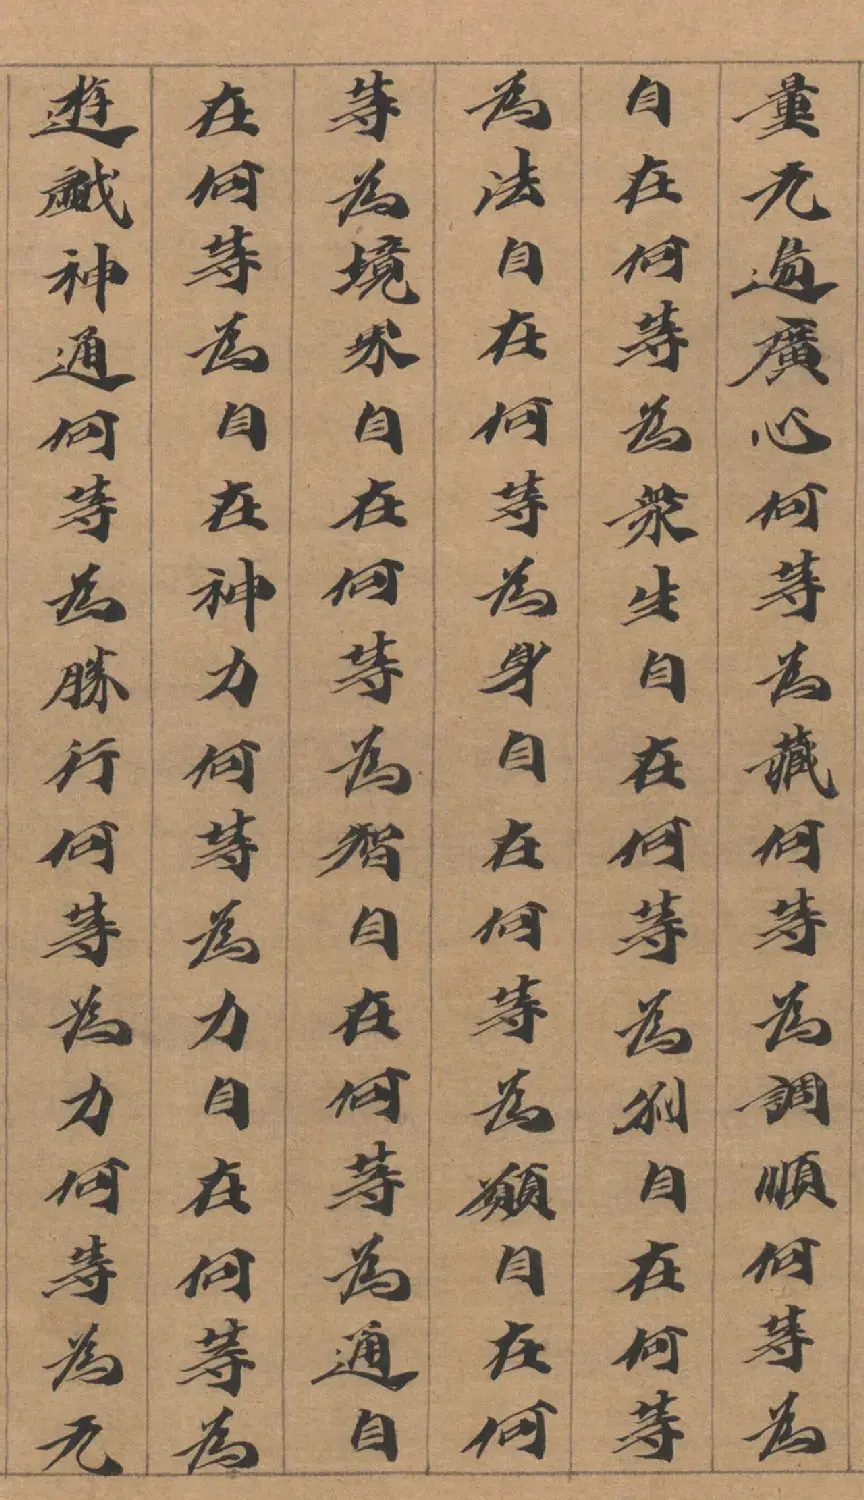 量无邊廣心何等為藏何等為調順何等為
自在何等為衆生自在何等為刹自在何等
為法自在何等為身自在何等為願自在何
等為境界自在何等為智自在何等為通自
在何等為自在神力何等為力自在何等為
遊戲神通何等為勝行何等為力何等為无